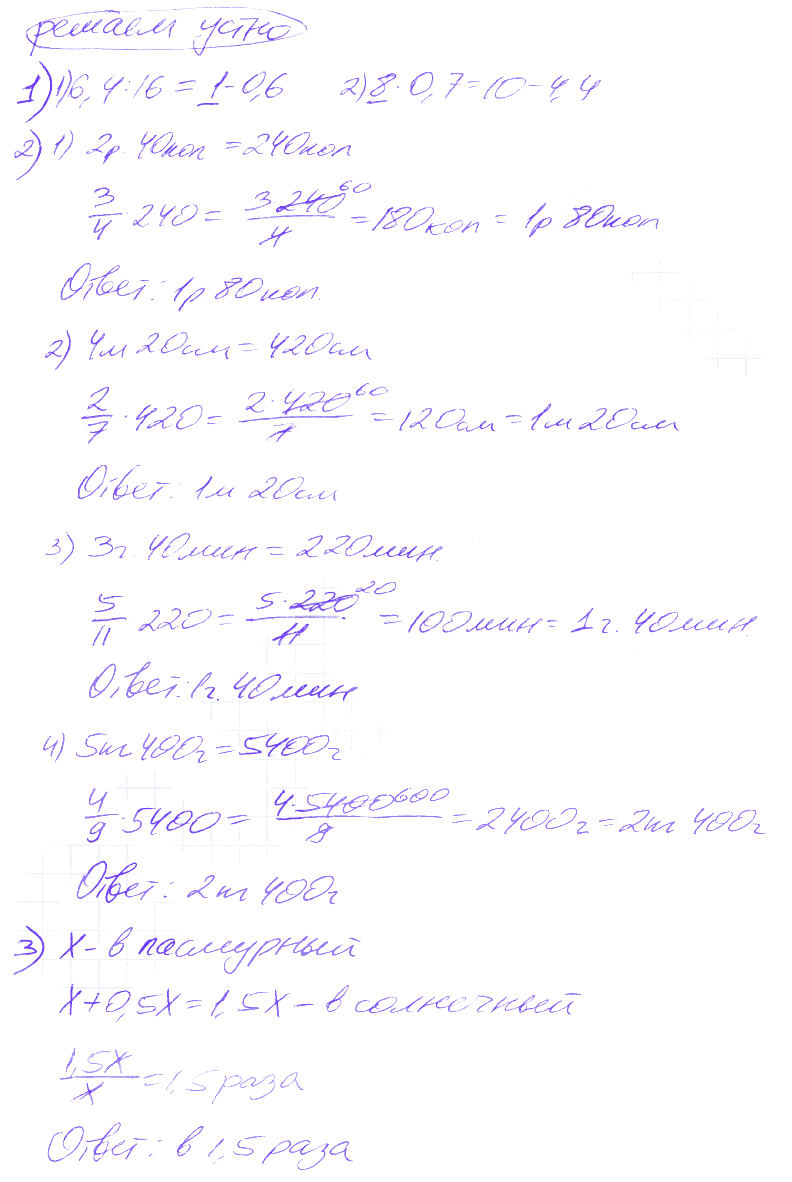 решаем устно
1) 1) 6,4:16 = 1-0,6 2) 8·0,7=10-4,4
2) 1) 2р. 40коп =240коп
3/4·240= 3·240⁶⁰/4 =180коп= 1р 80коп
Ответ: 1р 80коп.
2) 4м 20см=420см
2/7·420= 2·420⁶⁰/7 =120см=1м20см
Ответ: 1м 20см
3) 3г. 40мин = 220мин.
5/11·220= 5·220²⁰/11 =100мин= 1г. 40мин.
Ответ: 1г. 40мин
4) 5кг 400г=5400г
4/9·5400= 4·5400⁶⁰⁰/9 =2400г=2кг 400г
Ответ: 2кг 400г
3) X- в пасмурный
X+0,5X=1,5X- в солнечный
1,5X/X =1,5 раза
Ответ: в 1,5 раза